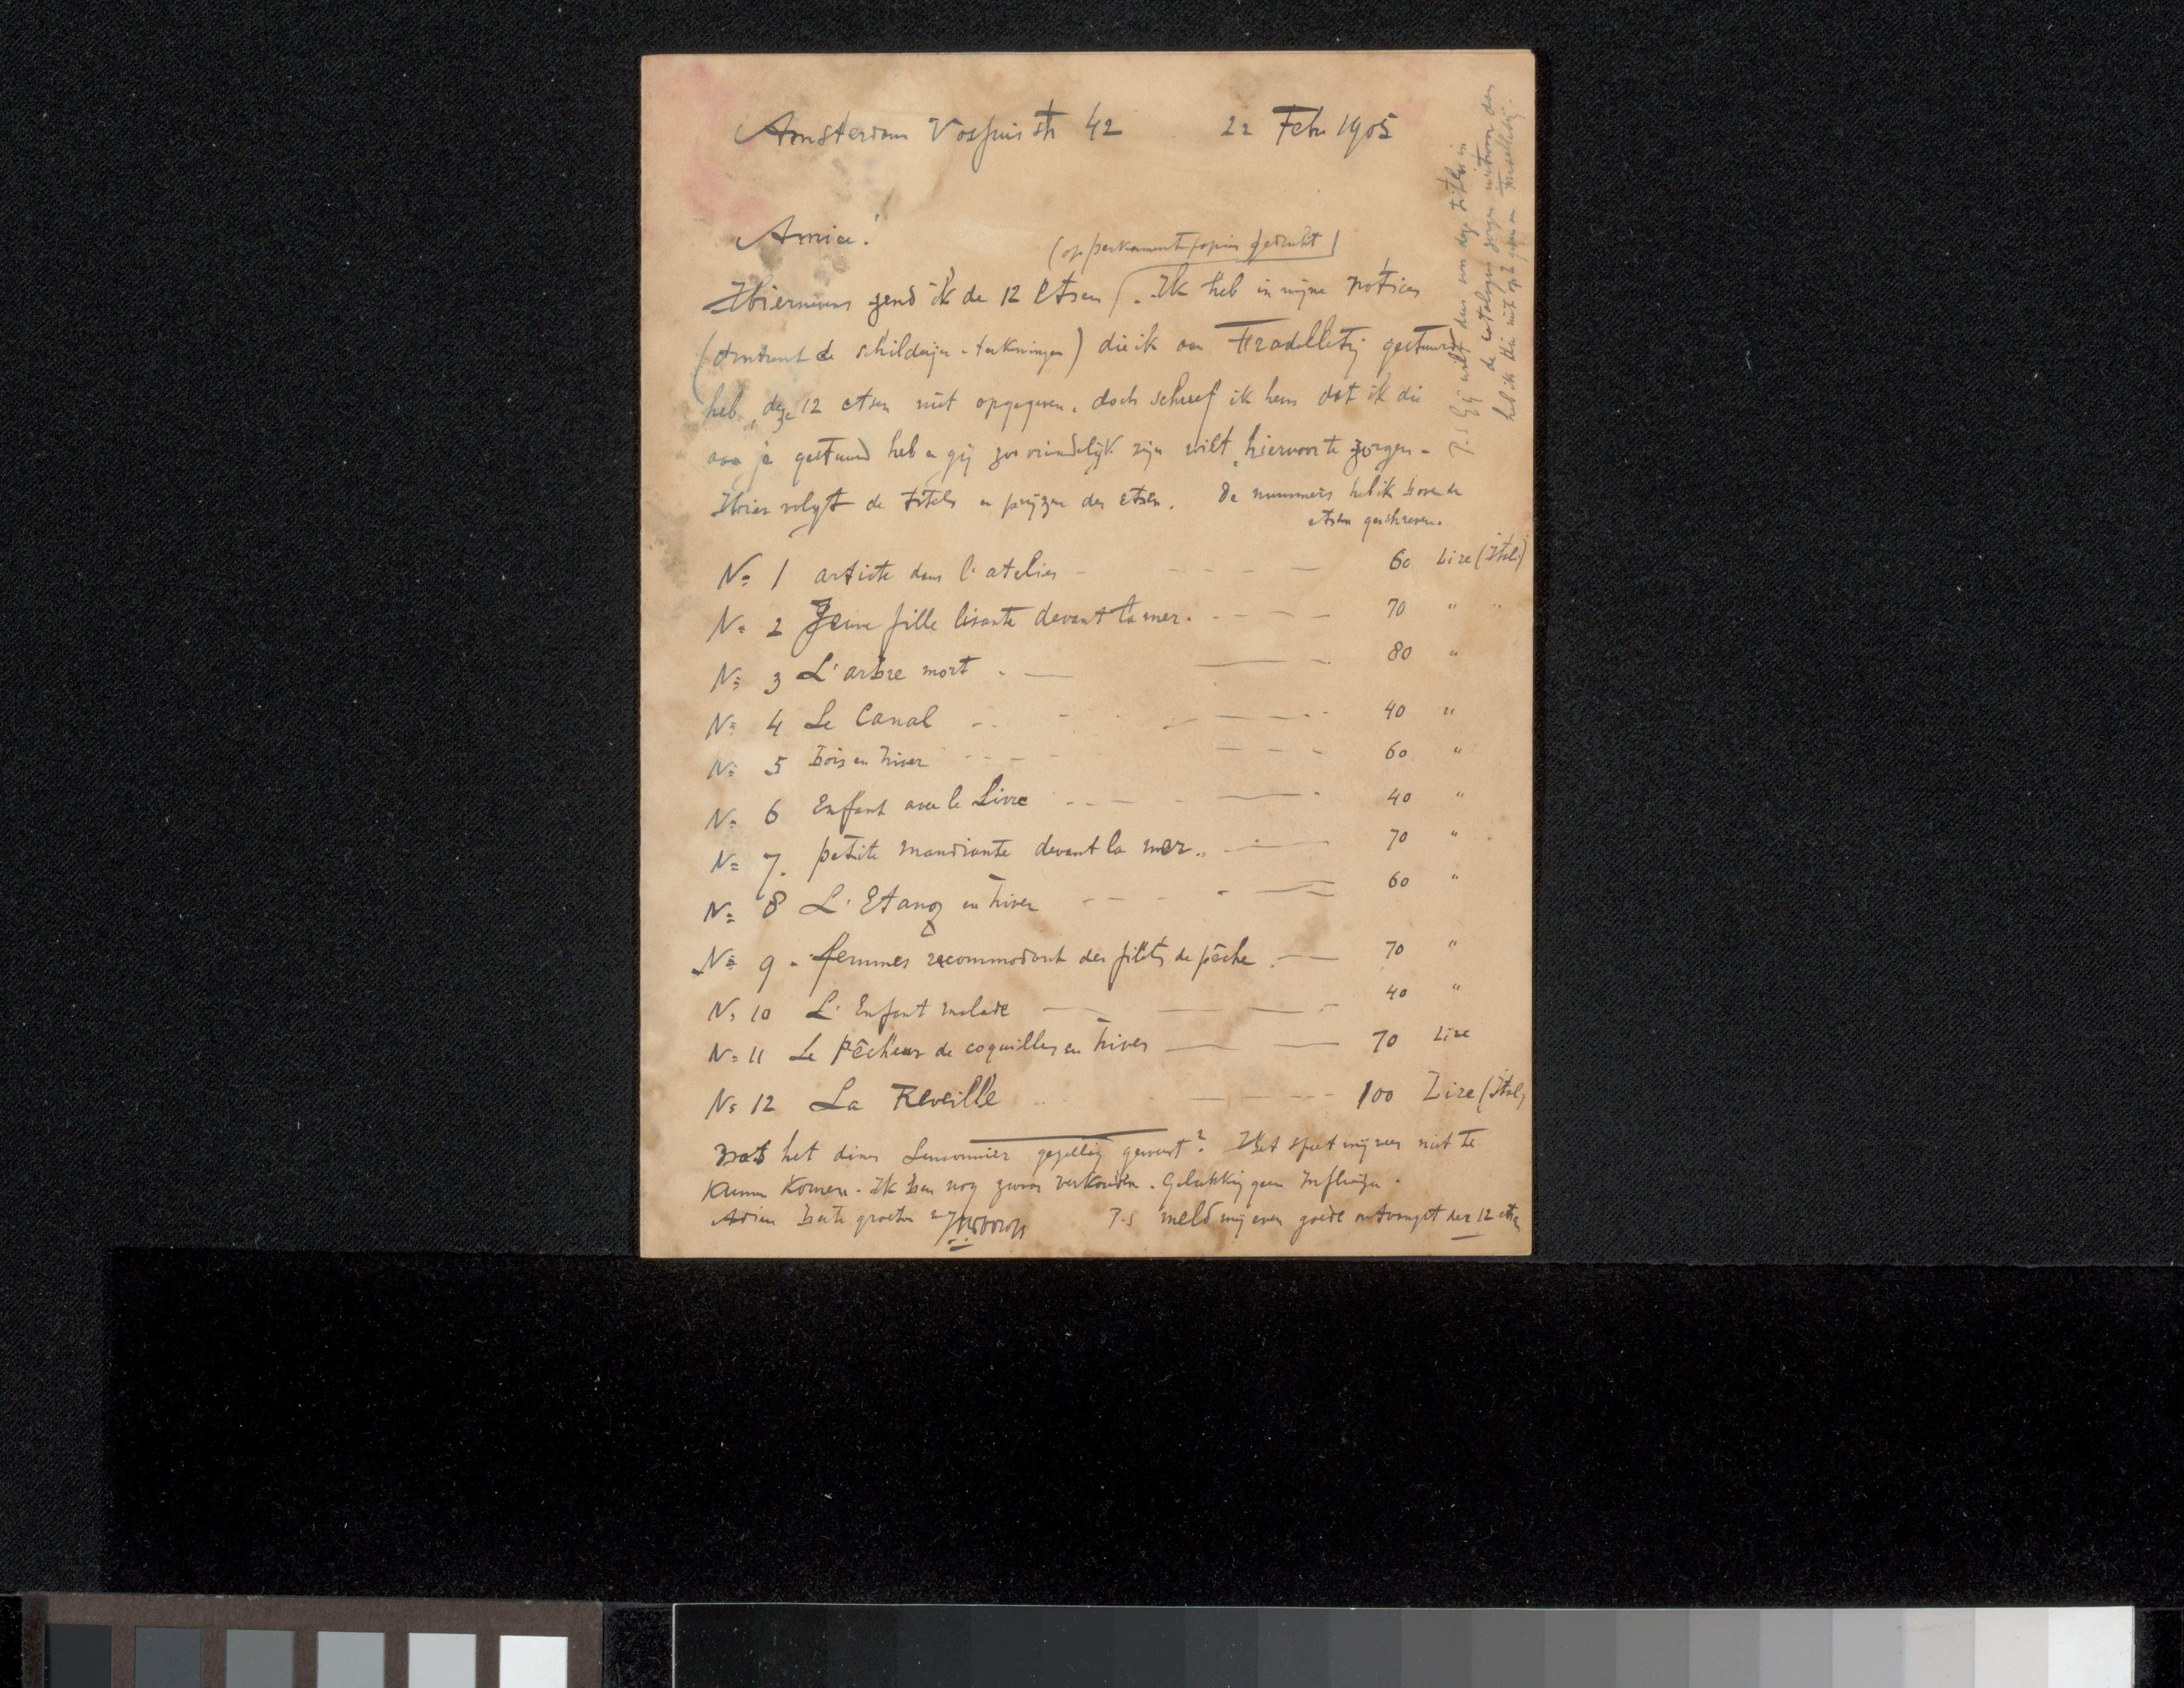 Amsterdam Vossiusstr 42 22 Febr 1905
Amice!
(op perkament papier gedrukt)
Hiernevens zend ik de 12 Etsen. Ik heb in mijne notices
(omtrent de schilderijen en teekeningen) die ik aan Fradelletij gestuurd
heb, deze 12 etsen niet opgegeven, doch schreef ik hem dat ik die
aan je gestuurd heb en gij zoo vriendelijk zijn wilt hiervoor te zorgen.
Hier volgt de titels en prijzen der etsen. De nummers heb ik boven de
etsen geschreven.
No 1 artiste dans l'atelier 60 Lire (Ital.)
No 2 Jeune fille lisante devant la mer. 70 " "
No 3 L'arbre mort 80 "
No 4 Le Canal 40 "
No 5 Bois en hiver 60 "
No 6 Enfant avec le Livre 40 "
No 7. petite mandiante devant la mer 70 "
No 8 L'Etang en hiver 60 "
No 9 femmes recommodant des filets de pêche 70 "
No 10 L'Enfant malade 40 "
No 11 Le Pêcheur de coquilles en hiver 70 Lire
No 12 La Reveille 100 Lire (Ital)
Was het diner gezellig geweest? Het speet mij zeer niet te
kunnen komen. Ik ben nog zwaar verkouden. Gelukkig geen Influenza.
Adieu beste groeten
P.S meld mij even goede ontvangst der 12 etsen
P.S Gij wilt dus von deze titels in
de catalogus zorgen want aan den
heb ik die niet op gegeven